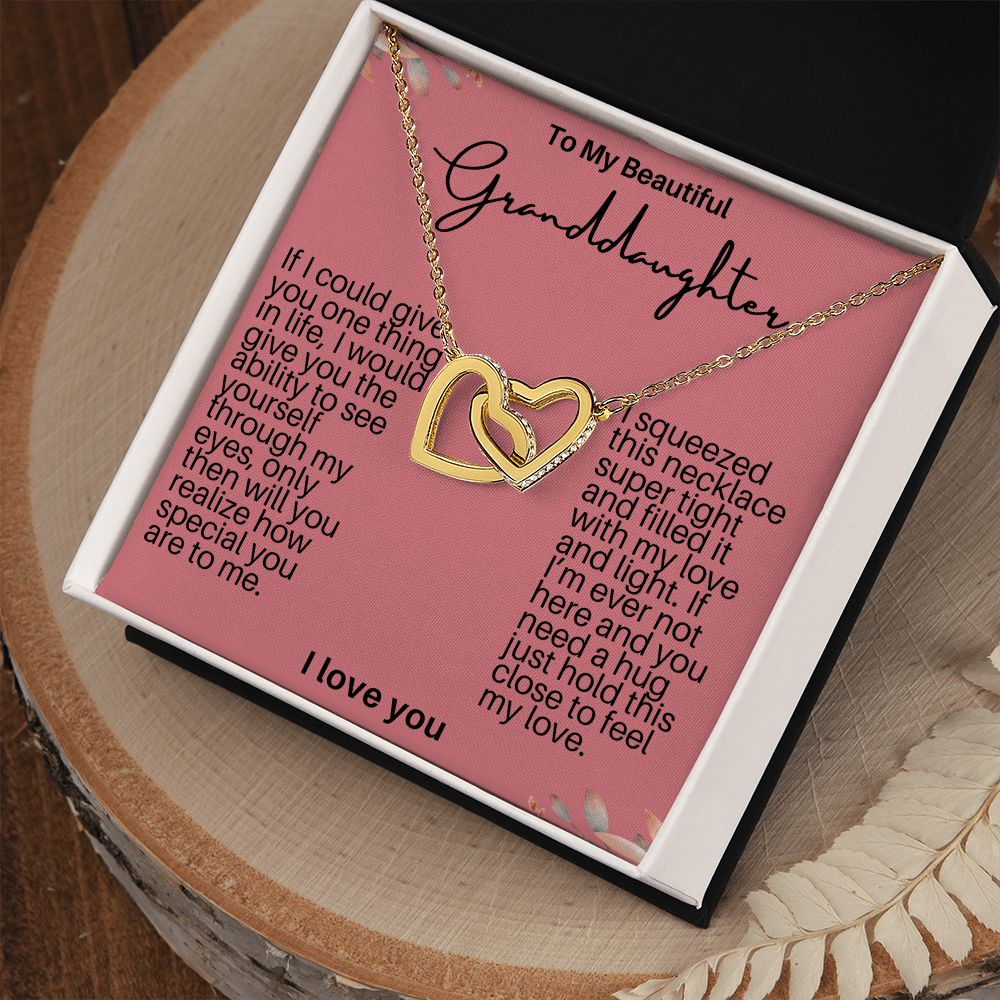 To My Beautiful
Granddaughter
If I could give
you one thing
in life, I would
give you the
ability to see
yourself
through my
eyes, only
then will you
realize how
special you
are to me.
I squeezed
this necklace
super tight
and filled it
with my love
and light. If
I'm ever not
here and you
need a hug
just hold this
close to feel
my love.
I love you